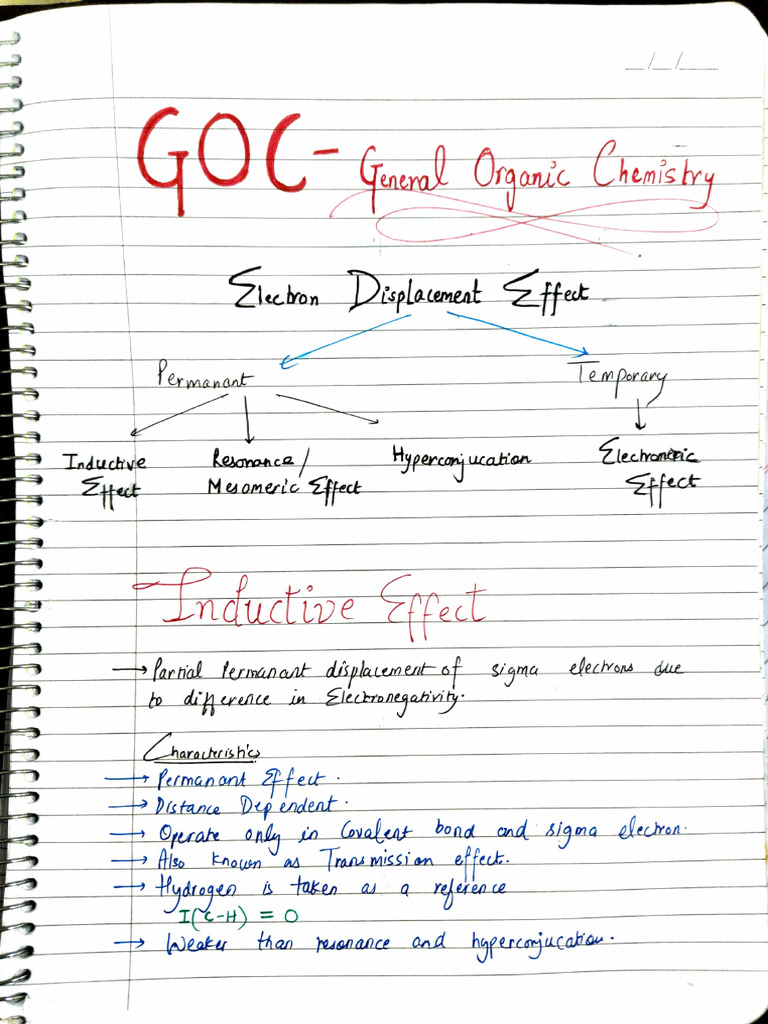 __/__/__
GOC - General Organic Chemistry
Electron Displacement Effect
Permanant Temporary
Inductive Resonance / Hyperconjucation Electromeric
Effect Mesomeric Effect Effect
Inductive Effect
→ Partial Permanant displacement of sigma electrons due
to difference in Electronegativity.
Characteristics
→ Permanant Effect.
→ Distance Dependent.
→ Operate only in Covalent bond and sigma electron.
→ Also known as Transmission effect.
→ Hydrogen is taken as a reference
I(C-H) = 0
→ Weaker than resonance and hyperconjucation.